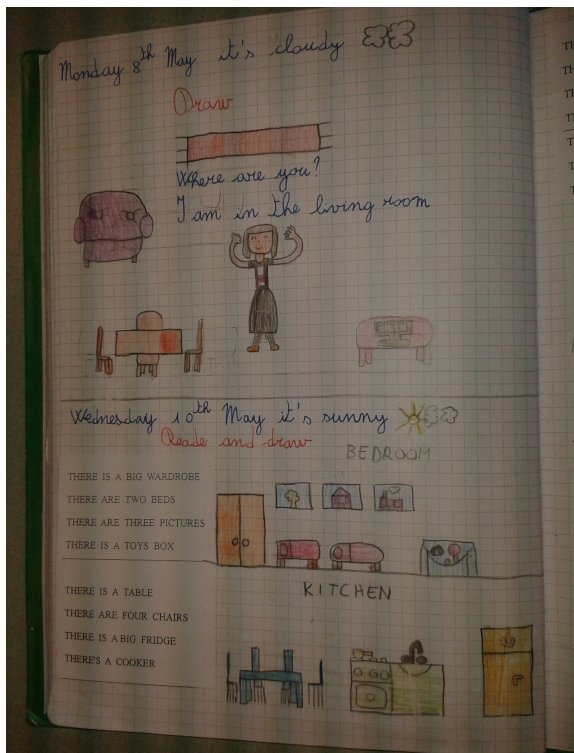 Monday 8th May it's cloudy
Draw
Where are you?
I am in the living room
Wednesday 10th May it's sunny
Reade and draw
BEDROOM
THERE IS A BIG WARDROBE
THERE ARE TWO BEDS
THERE ARE THREE PICTURES
THERE IS A TOYS BOX
KITCHEN
THERE IS A TABLE
THERE ARE FOUR CHAIRS
THERE IS A BIG FRIDGE
THERE'S A COOKER